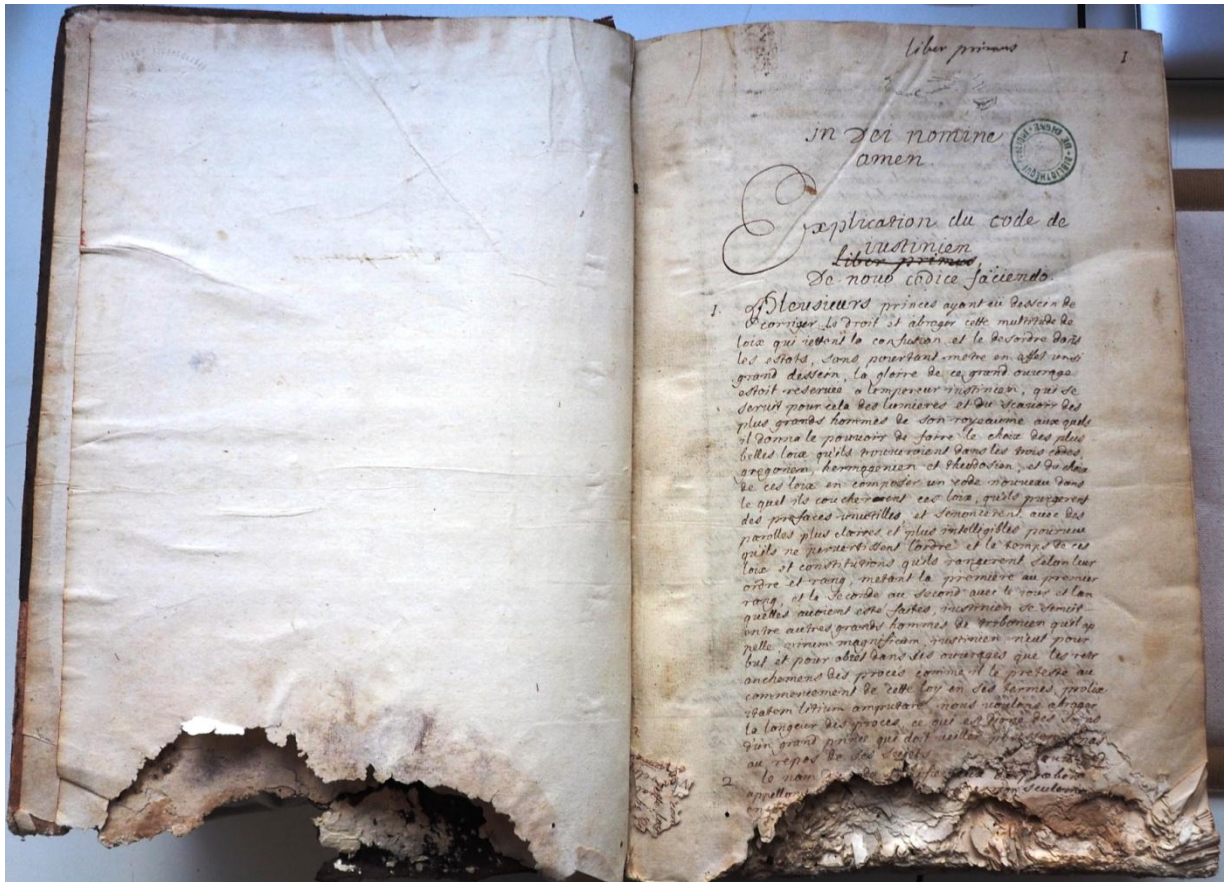 liber primus
1
in Dei nomine
amen
BIBLIOTHÈQUE DE DIGNE
Explication du code de
iustinien
liber primus
De nouo codice faciendo
1. Pleusieurs princes ayant eü dessein de
corriger le droit et abroger cette multitude de
loix qui iettent la confusion et le desordre dans
les estats, sans pourtant metre en effet un si
grand dessein, la gloire de ce grand ouurage
estoit reseruée a lempereur iustinien, qui se
seruit pour cela des lumieres et du scauoir des
plus grands hommes de son royaume aux quels
il donna le pouuoir de faire le choix des plus
belles loix quils trouueroient dans les trois codes,
gregorien, hermogenien et theodosien, et du choix
de ces loix en composer un code nouueau dans
le quel ils coucheroient ces loix, quils purgerent
des prefaces inutilles et enoncerent auec des
parolles plus claires et plus intelligibles pourueu
quils ne peruertissent l'ordre et le temps de ces
loix et constitutions quils rangerent selon leur
ordre et rang, metant la premiere au premier
rang, et la seconde au second auec le iour et lan
quelles auoient este faites, iustinien se seruit
entre autres grands hommes de tribonien quil ap
pelle virum magnificum, iustinien n'eut pour
but et pour obiet dans ses ouurages que les retr
anchemens des proces comme il le proteste au
commencement de cette loy en ses termes, prolix
itatem litium amputare, nous voulons abroger
la longeur des proces, ce qui est digne des soins
d'un grand prince qui doit veiller
au repos de ses suiets
2 le nom de
appellon
seulem